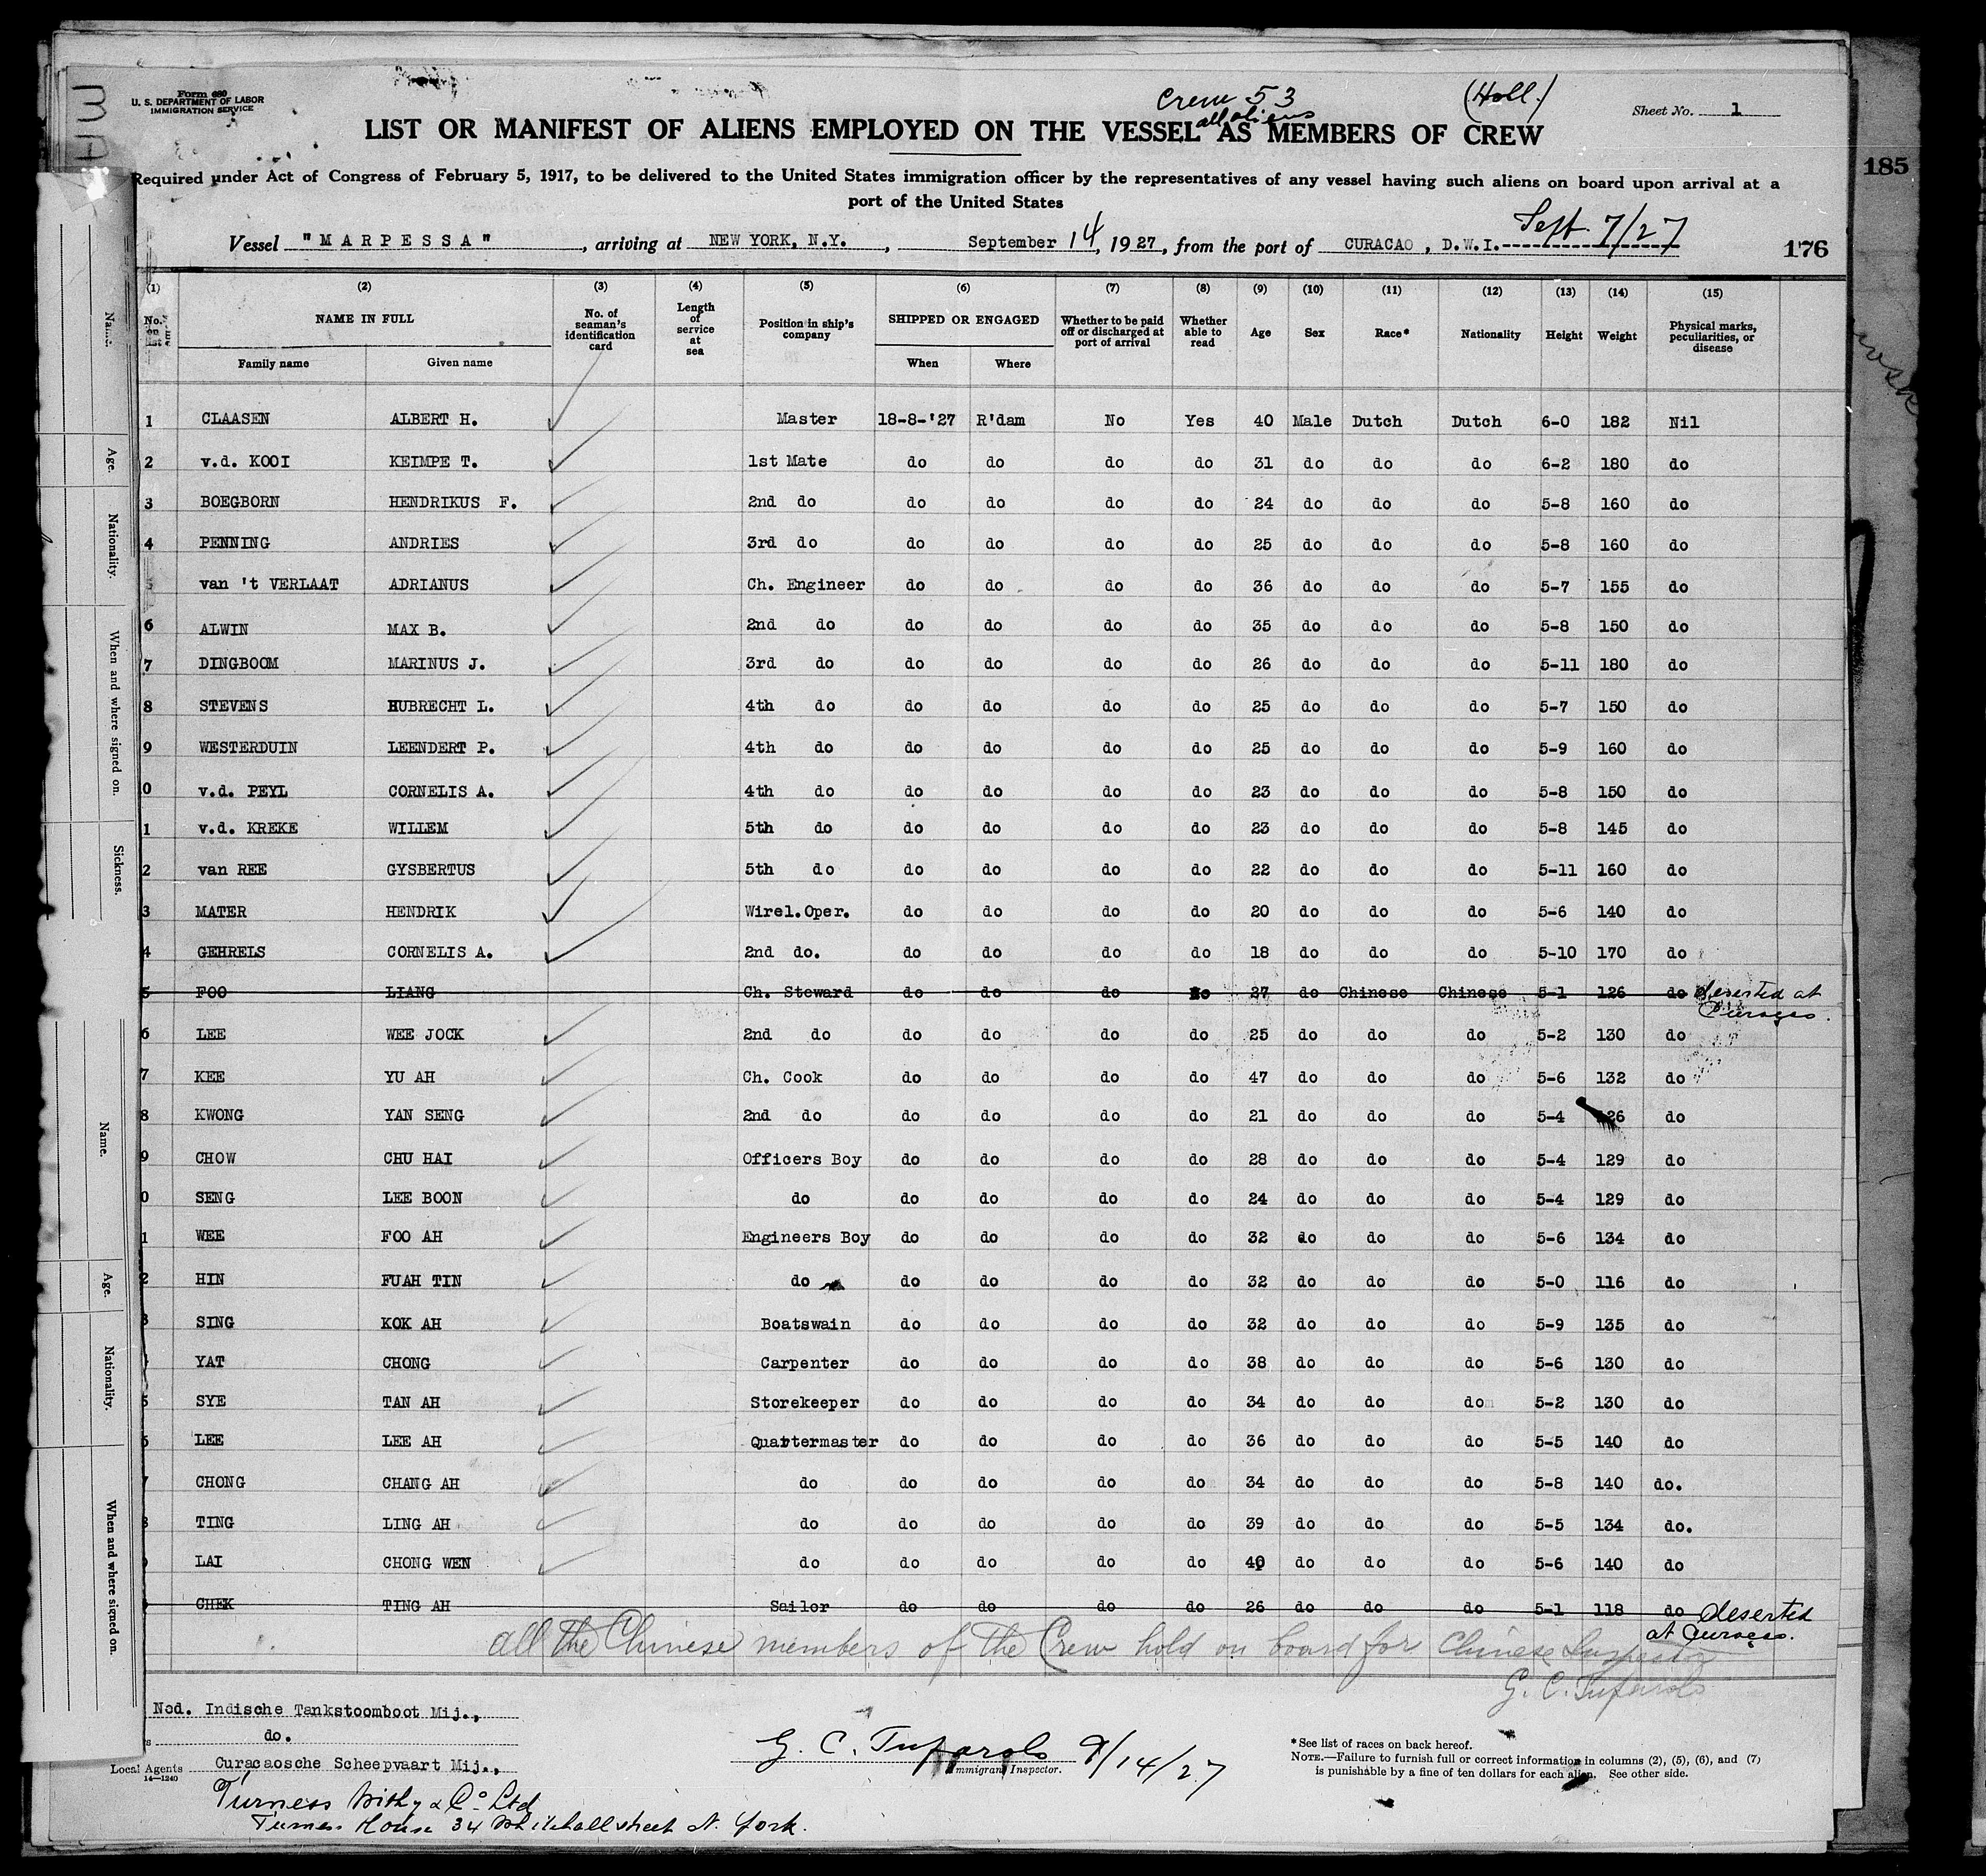 Form 680
U. S. DEPARTMENT OF LABOR
IMMIGRATION SERVICE
Crew 53
all aliens
(Holl.)
Sheet No. 1
LIST OR MANIFEST OF ALIENS EMPLOYED ON THE VESSEL AS MEMBERS OF CREW
185
Required under Act of Congress of February 5, 1917, to be delivered to the United States immigration officer by the representatives of any vessel having such aliens on board upon arrival at a
port of the United States
Vessel "MARPESSA", arriving at NEW YORK, N.Y., September 14, 1927, from the port of CURACAO, D.W.I. Sept. 7/27
176
(1) (2) (3) (4) (5) (6) (7) (8) (9) (10) (11) (12) (13) (14) (15)
No. on list NAME IN FULL No. of seaman's identification card Length of service at sea Position in ship's company SHIPPED OR ENGAGED Whether to be paid off or discharged at port of arrival Whether able to read Age Sex Race* Nationality Height Weight Physical marks, peculiarities, or disease
Family name Given name When Where
1 CLAASEN ALBERT H. Master 18-8-'27 R'dam No Yes 40 Male Dutch Dutch 6-0 182 Nil
2 v.d. KOOI KEIMPE T. 1st Mate do do do do 31 do do do 6-2 180 do
3 BOEGBORN HENDRIKUS F. 2nd do do do do do 24 do do do 5-8 160 do
4 PENNING ANDRIES 3rd do do do do do 25 do do do 5-8 160 do
5 van 't VERLAAT ADRIANUS Ch. Engineer do do do do 36 do do do 5-7 155 do
6 ALWIN MAX B. 2nd do do do do do 35 do do do 5-8 150 do
7 DINGBOOM MARINUS J. 3rd do do do do do 26 do do do 5-11 180 do
8 STEVENS HUBRECHT L. 4th do do do do do 25 do do do 5-7 150 do
9 WESTERDUIN LEENDERT P. 4th do do do do do 25 do do do 5-9 160 do
0 v.d. PEYL CORNELIS A. 4th do do do do do 23 do do do 5-8 150 do
1 v.d. KREKE WILLEM 5th do do do do do 23 do do do 5-8 145 do
2 van REE GYSBERTUS 5th do do do do do 22 do do do 5-11 160 do
3 MATER HENDRIK Wirel.Oper. do do do do 20 do do do 5-6 140 do
4 GEHRELS CORNELIS A. 2nd do. do do do do 18 do do do 5-10 170 do
5 FOO LIANG Ch. Steward do do do 27 do Chinese Chinese 5-1 126 do deserted at
Curaçao.
6 LEE WEE JOCK 2nd do do do do do 25 do do do 5-2 130 do
7 KEE YU AH Ch. Cook do do do do 47 do do do 5-6 132 do
8 KWONG YAN SENG 2nd do do do do do 21 do do do 5-4 126 do
9 CHOW CHU HAI Officers Boy do do do do 28 do do do 5-4 129 do
0 SENG LEE BOON do do do do do 24 do do do 5-4 129 do
1 WEE FOO AH Engineers Boy do do do do 32 do do do 5-6 134 do
2 HIN FUAH TIN do do do do do 32 do do do 5-0 116 do
3 SING KOK AH Boatswain do do do do 32 do do do 5-9 135 do
YAT CHONG Carpenter do do do do 38 do do do 5-6 130 do
5 SYE TAN AH Storekeeper do do do do 34 do do do 5-2 130 do
6 LEE LEE AH Quartermaster do do do do 36 do do do 5-5 140 do
CHONG CHANG AH do do do do do 34 do do do 5-8 140 do.
8 TING LING AH do do do do do 39 do do do 5-5 134 do.
LAI CHONG WEN do do do do do 40 do do do 5-6 140 do
CHEK TING AH Sailor do do do do 26 do do do 5-1 118 do deserted
at Curaçao.
all the Chinese members of the Crew hold on board for Chinese Inspector
G. C. Tufarolo
Ned. Indische Tankstoomboot Mij.,
do.
Local Agents Curacaosche Scheepvaart Mij.,
14-1240
Furness Withy & Co. Ltd
Furness House 34 Whitehall street N. York.
G. C. Tufarolo 9/14/27
Immigrant Inspector.
*See list of races on back hereof.
NOTE.—Failure to furnish full or correct information in columns (2), (5), (6), and (7)
is punishable by a fine of ten dollars for each alien. See other side.
Name.
Age.
Nationality.
When and where signed on.
Sickness.
Name.
Age.
Nationality.
When and where signed on.